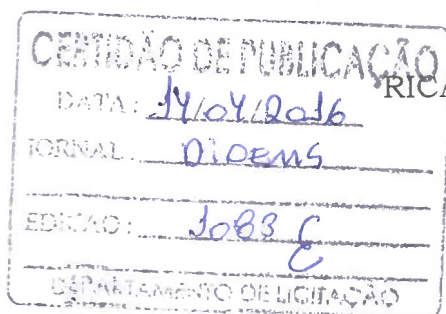 CERTIDÃO DE PUBLICAÇÃO
RICA
DATA: 14/04/2016
JORNAL: DIOEMS
EDIÇÃO: 1083
DEPARTAMENTO DE LICITAÇÃO